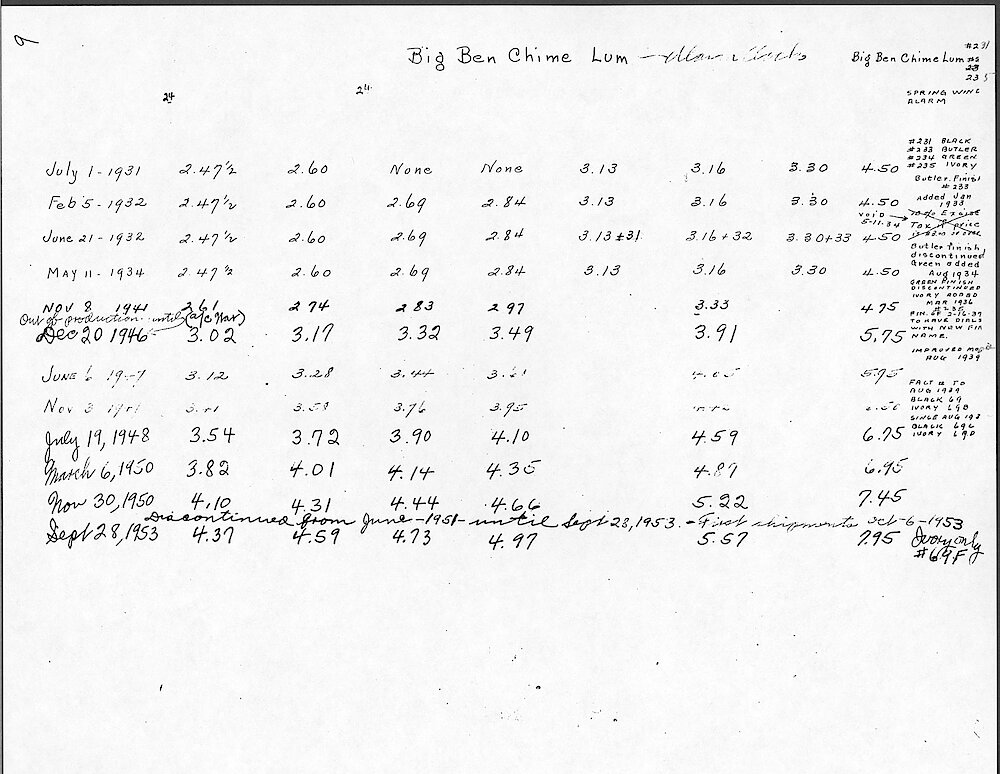 9
Big Ben Chime Lum
Big Ben Chime Lum
#231
SPRING WIND
ALARM
24
24
#231 BLACK
#233 BUTLER
#234 GREEN
#235 IVORY
July 1-1931 2.47½ 2.60 None None 3.13 3.16 3.30 4.50
Butler Finish
#233
Added Jan
1933
Feb 5-1932 2.47½ 2.60 2.69 2.84 3.13 3.16 3.30 4.50
VOID
5-11-34
10% Excise
Tax price
June 21-1932 2.47½ 2.60 2.69 2.84 3.13+31 3.16+32 3.30+33 4.50
Butler finish
discontinued
Green added
Aug 1934
May 11-1934 2.47½ 2.60 2.69 2.84 3.13 3.16 3.30 4.50
GREEN FINISH
DISCONTINUED
IVORY ADDED
MAR 1936
#235
Nov 8 1941 2.61 2.74 2.83 2.97 3.33 4.75
TO HAVE DIALS
WITH NOW FIR
NAME.
Out of production until (a/c War)
Dec 20 1946 3.02 3.17 3.32 3.49 3.91 5.75
IMPROVED
AUG 1939
June 6 3.12 3.28 3.44 5.95
FACT # TO
AUG 1939
BLACK 69
IVORY 69B
SINCE AUG
BLACK 69C
IVORY 69D
Nov 3 3.76 3.95
July 19, 1948 3.54 3.72 3.90 4.10 4.59 6.75
March 6, 1950 3.82 4.01 4.14 4.35 4.87 6.95
Nov 30, 1950 4.10 4.31 4.44 4.66 5.22 7.45
Discontinued from June-1951-until Sept 28, 1953.-First shipments Oct-6-1953
Sept 28, 1953 4.37 4.59 4.73 4.97 5.57 7.95
Ivory only
#69F